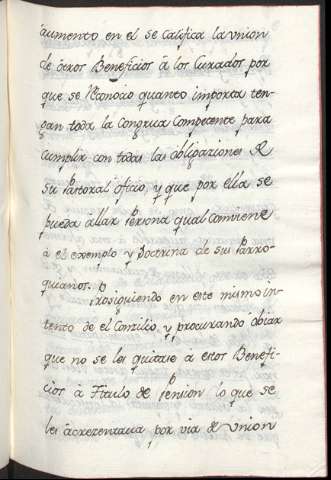 aumento en el se califica la vnion
de otros Beneficios â los Curados por
que se Reconoció quanto importa ten-
gan toda la Congrua Competente para
Cumplir con todas las obligaziones de
su Pastoral oficio, y que por ella se
pueda állar Persona qual comviene
â el exemplo y Doctrina de sus Parro-
quianos. Prosiguiendo en este mismo in-
tento de el Conzilio, y procurando óbiar
que no se les quitase â estos Benefi-
cios â Titulo de Penssion lo que se
les âcrezentaua por via de vnion